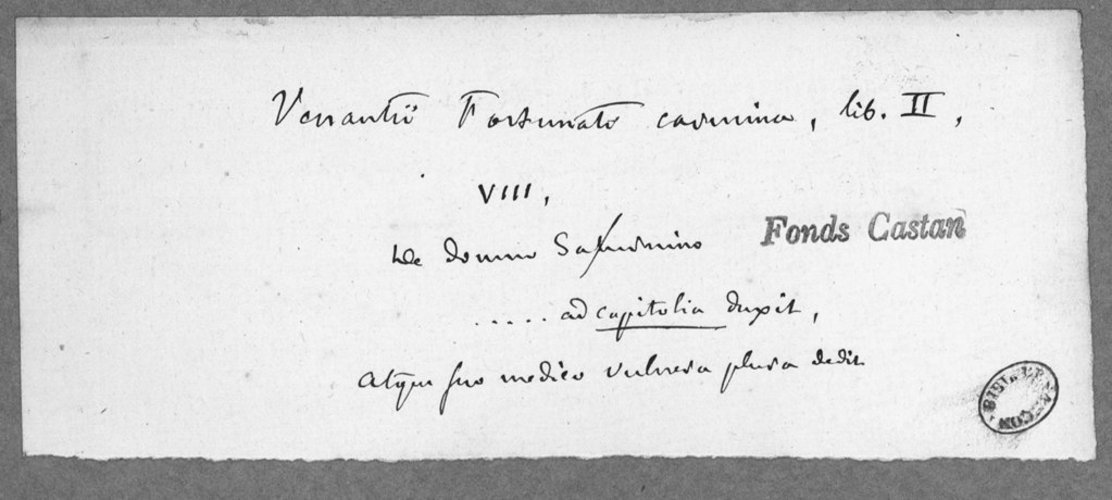 Venantii Fortunati carmina, lib. II,
VIII,
De domno Saturnino
Fonds Castan
..... ad capitolia duxit,
atque suo medico vulnera plura dedit
BIBL. BESANÇON